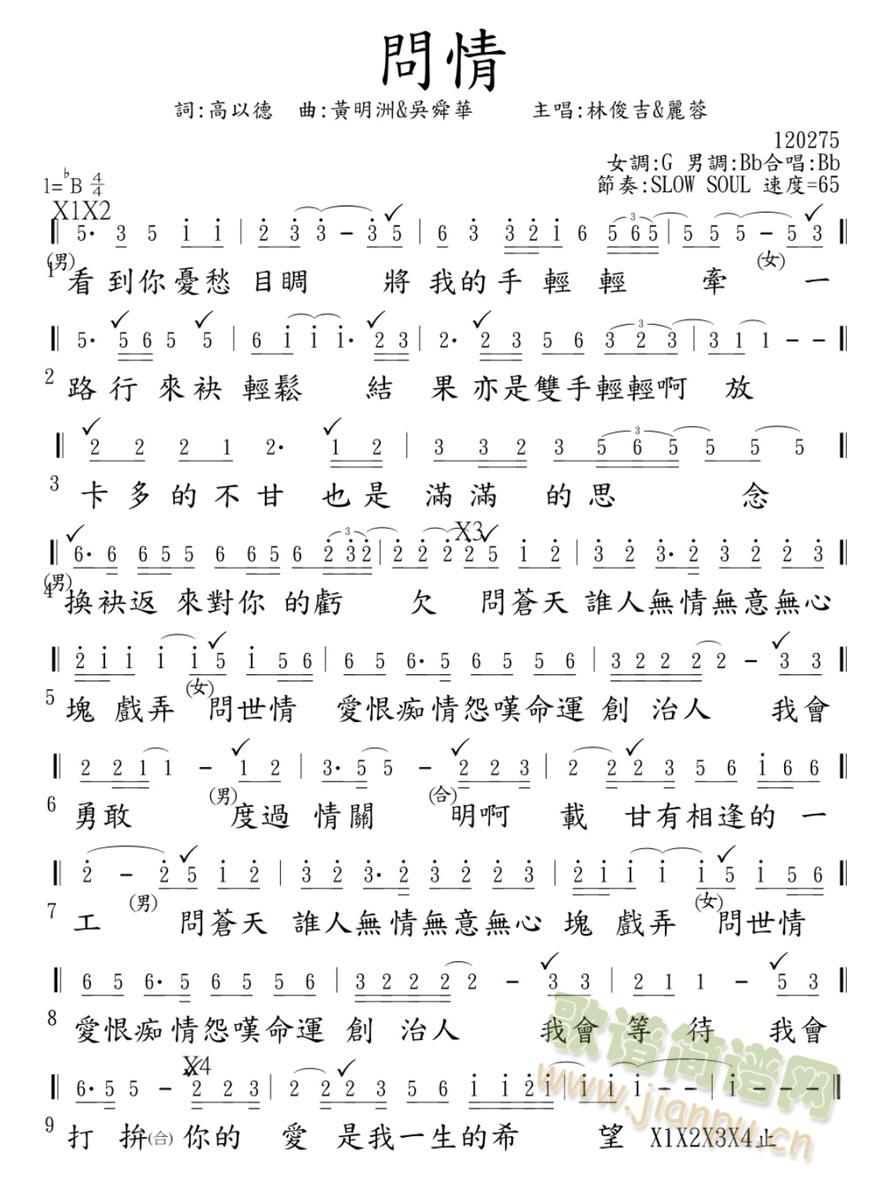 問情
詞:高以德 曲:黃明洲&吳舜華 主唱:林俊吉&麗蓉
120275
女調:G 男調:Bb合唱:Bb
1=♭B 4/4 節奏:SLOW SOUL 速度=65
X1X2
‖ 5· 3 5 i i | 2 3 3 - 3 5 | 6 3 3 2 i 6 5 6 5 | 5 5 - 5 3 ‖
1 (男) 看到你憂愁 目睭 將我的手輕輕 牽 (女) 一
‖ 5· 5 6 5 5 | 6 i i i· 2 3 | 2· 2 3 5 6 3 2 3 | 3 1 1 - - ‖
2 路行來袂輕鬆 結果亦是雙手輕輕啊 放
‖ 2 2 2 1 2· 1 2 | 3 3 2 3 5 6 5 5 5 ‖
3 卡多的不甘 也是 滿滿 的思 念
X3
‖ 6· 6 6 5 5 6 6 5 6 2 3 2 | 2 2 2 2 5 i 2 | 3 2 3· 2 3 2 2 3 ‖
4 (男) 換袂返來對你的虧 欠 問蒼天 誰人無情無意無心
‖ 2 i i i i 5 i 5 6 | 6 5 6· 5 6 5 5 6 | 3 2 2 2 2 - 3 3 ‖
5 塊戲弄 (女) 問世情 愛恨痴情怨嘆命運 創治人 我會
‖ 2 2 1 1 - 1 2 | 3· 5 5 - 2 2 3 | 2 2 2 2 3 5 6 i 6 6 ‖
6 勇敢 (男) 度過 情關 (合) 明啊 載 甘有相逢的一
‖ 2 - 2 5 i 2 | 3 2 3· 2 3 2 2 3 | 2 i i i i 5 i 5 6 ‖
7 工 (男) 問蒼天 誰人無情無意無心 塊戲弄 (女) 問世情
‖ 6 5 6· 5 6 5 5 6 | 3 2 2 2 2 - 3 3 | 2 1 1 - 5 3 ‖
8 愛恨痴情怨嘆命運 創治人 我會 等待 我會
X4
‖ 6· 5 5 - 2 2 3 | 2 2 5 5 6 i i 2 i | i - - - | i - - - ‖
9 打拚(合)你的 愛 是我一生的希 望 X1X2X3X4止
歌谱简谱网
www.jianpu.cn